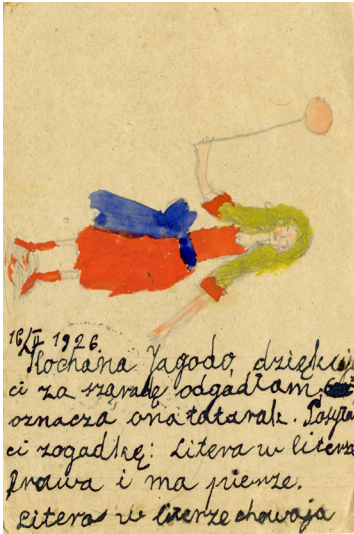 16/II 1926.
Kochana Jagodo, dziękuję
ci za szaradę odgadłam,
oznacza ona tatarak.
ci zogadkę: Litera w literze
prawa i ma pierze.
Litera w literze chowaja